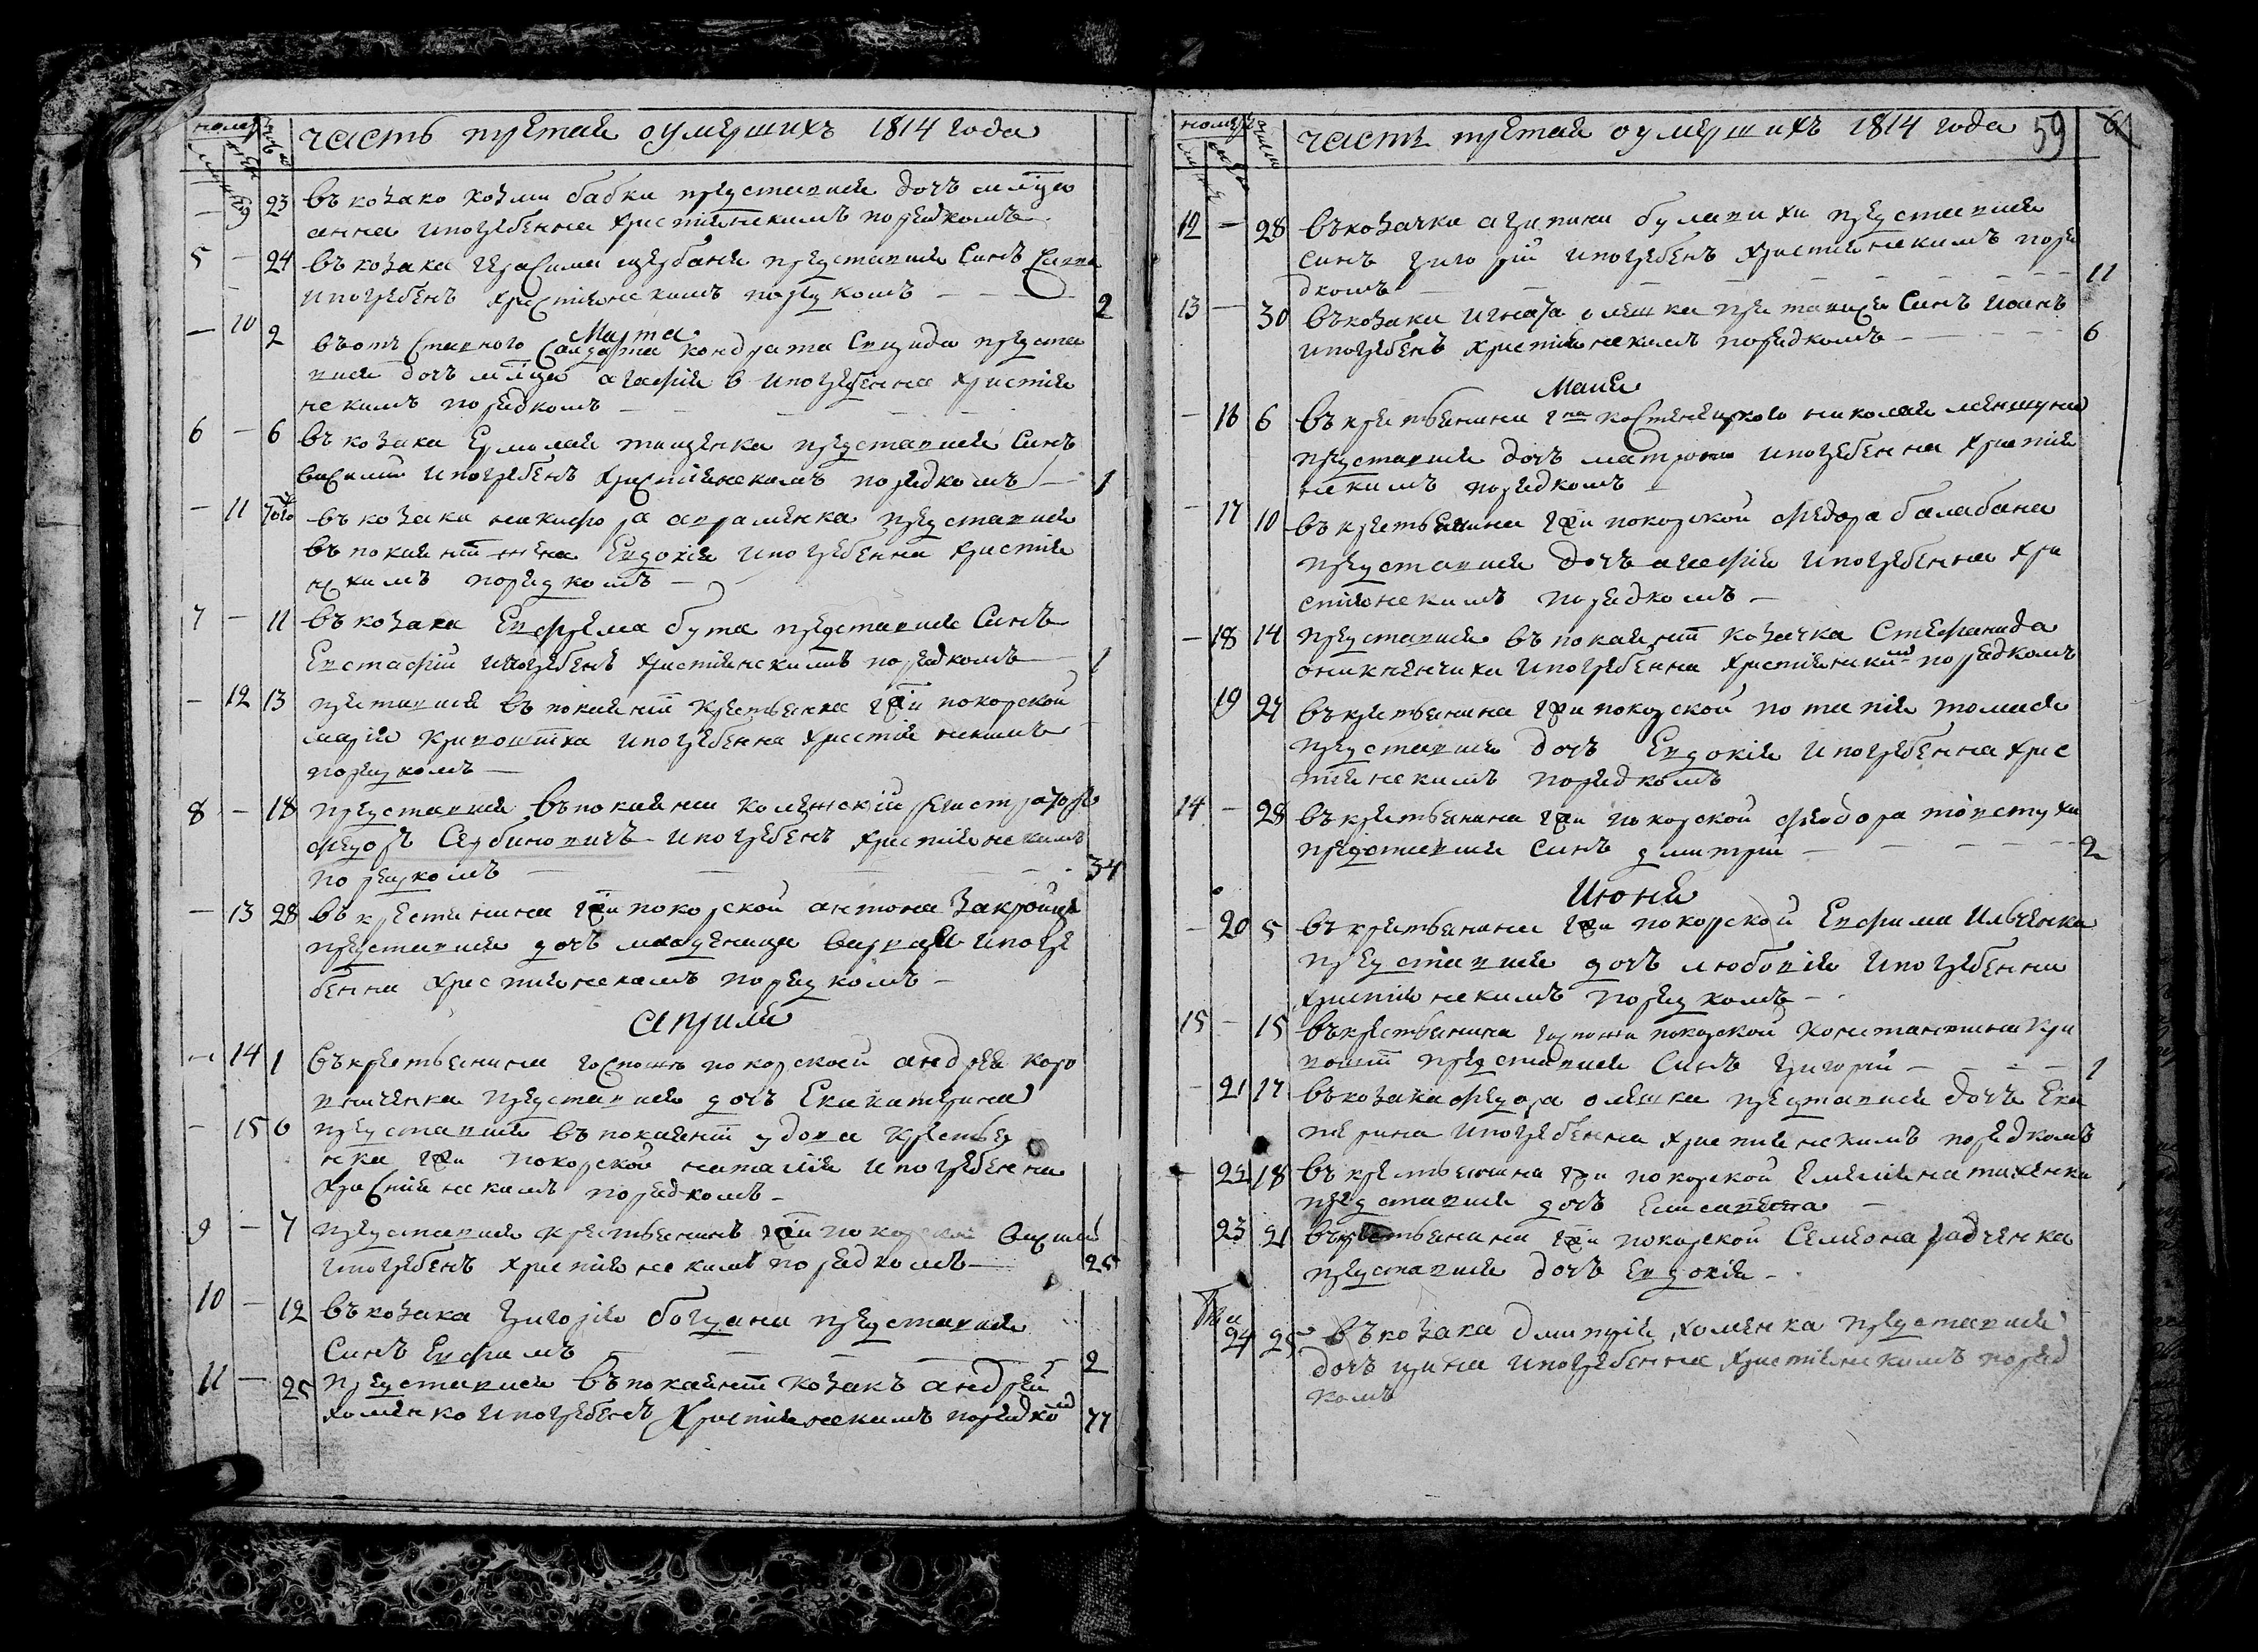 часть третая оумершихъ 1814 года
9 23 въ козака козми бабки представися дочъ млца
анна и погребенна христіянскимъ порядкомъ
5 — 24 въ козака герасима щербаня представися Синъ Савва
и погребенъ христіянскимъ порядкомъ — 2
Марта
— 10 2 въ отъставного Салдата кондрата предста
вися дочъ млца агафія и погребенна христіян
скимъ порядкомъ —
6 — 6 въ козака Ермолая тищенка представися Синъ
василий и погребенъ христіянскимъ порядкомъ — 1
— 11 того въ козака никифора авраменка представися
въ покаяніи жена Евдокія и погребенна христіян
скимъ порядкомъ —
7 — 11 въ козака Евфрема бута представися Синъ
Евстафій и погребенъ христіянскимъ порядкомъ — 1
— 12 13 преставися въ покаяніи крестьянка гпжи покорской
марія кривошійка и погребенна христіянскимъ
порядкомъ —
8 — 18 представися въ покаянии колежскій регистраторъ
федоръ Сербиновичъ и погребенъ христіянскимъ
порядкомъ — 34
— 13 28 въ крестянина гпжи покорской антона Закройця
представися дочъ младеница варвара и погре
бенна христіянскимъ порядкомъ —
Априля
— 14 1 въ крестьянина госпожы покорской андрея коро
вниченка представися дочъ Екатерина
— 15 6 представися въ покаяніи удова крестья
нка гпжи покорской наталія и погребенна
христіянскимъ порядкомъ —
9 — 7 представися крестьянинъ гпжи покорской василий
и погребенъ христіянскимъ порядкомъ — 25
10 — 12 въ козака григорія богдана представися
Синъ Евфимъ — 2
11 — 25 представися въ покаяніи козакъ андрей
хоменко и погребенъ христіянскимъ порядком 77
часть третая оумершихъ 1814 года 59
12 — 28 въ козачки агрипини булавихи представися
синъ григорій и погребенъ христіянскимъ поря
дкомъ — 11
13 — 30 въ козака игната олешка преставися Синъ иоанъ
и погребенъ христіянскимъ порядкомъ — 6
Маия
— 16 6 въ крестьянина гна костенецкого николая
представися дочъ матрона и погребенна христіян
скимъ порядкомъ
— 17 10 въ крестьянина гпжи покорской федора балабана
представися дочъ агафія и погребенна хри
стіянскимъ порядкомъ —
— 18 14 представися въ покаяніи козачка Стефанида
оникіенчиха и погребенна христіянским порядкомъ
19 24 въ крестьянина гпжи покорской потапія томася
представися дочъ Евдокія и погребенна хрис
тіянскимъ порядкомъ
14 — 28 въ крестьянина гпжи покорской феодора товстухи
представися синъ дмитрій — 2
Июня
— 20 5 въ крестьянина гпжи покорской Евфима Ильченка
представися дочъ любовія и погребенна
христіянскимъ порядкомъ —
15 — 15 въ крестьянина госпожи покорской константина кри
вошіи представися Синъ григорій — 1
— 21 17 въ козака федора олешка представися дочъ Ека
терина и погребенна христіянскимъ порядкомъ
— 22 18 въ крестьянина гпжи покорской Емеліяна тихенка
представися дочъ Елисавета —
23 21 въ крестьянина гпжи покорской Семіона радченка
представися дочъ Евдокія —
24 25 въ козака дмитрія хоменка представися
дочъ ирина и погребенна христіянскимъ поряд
комъ